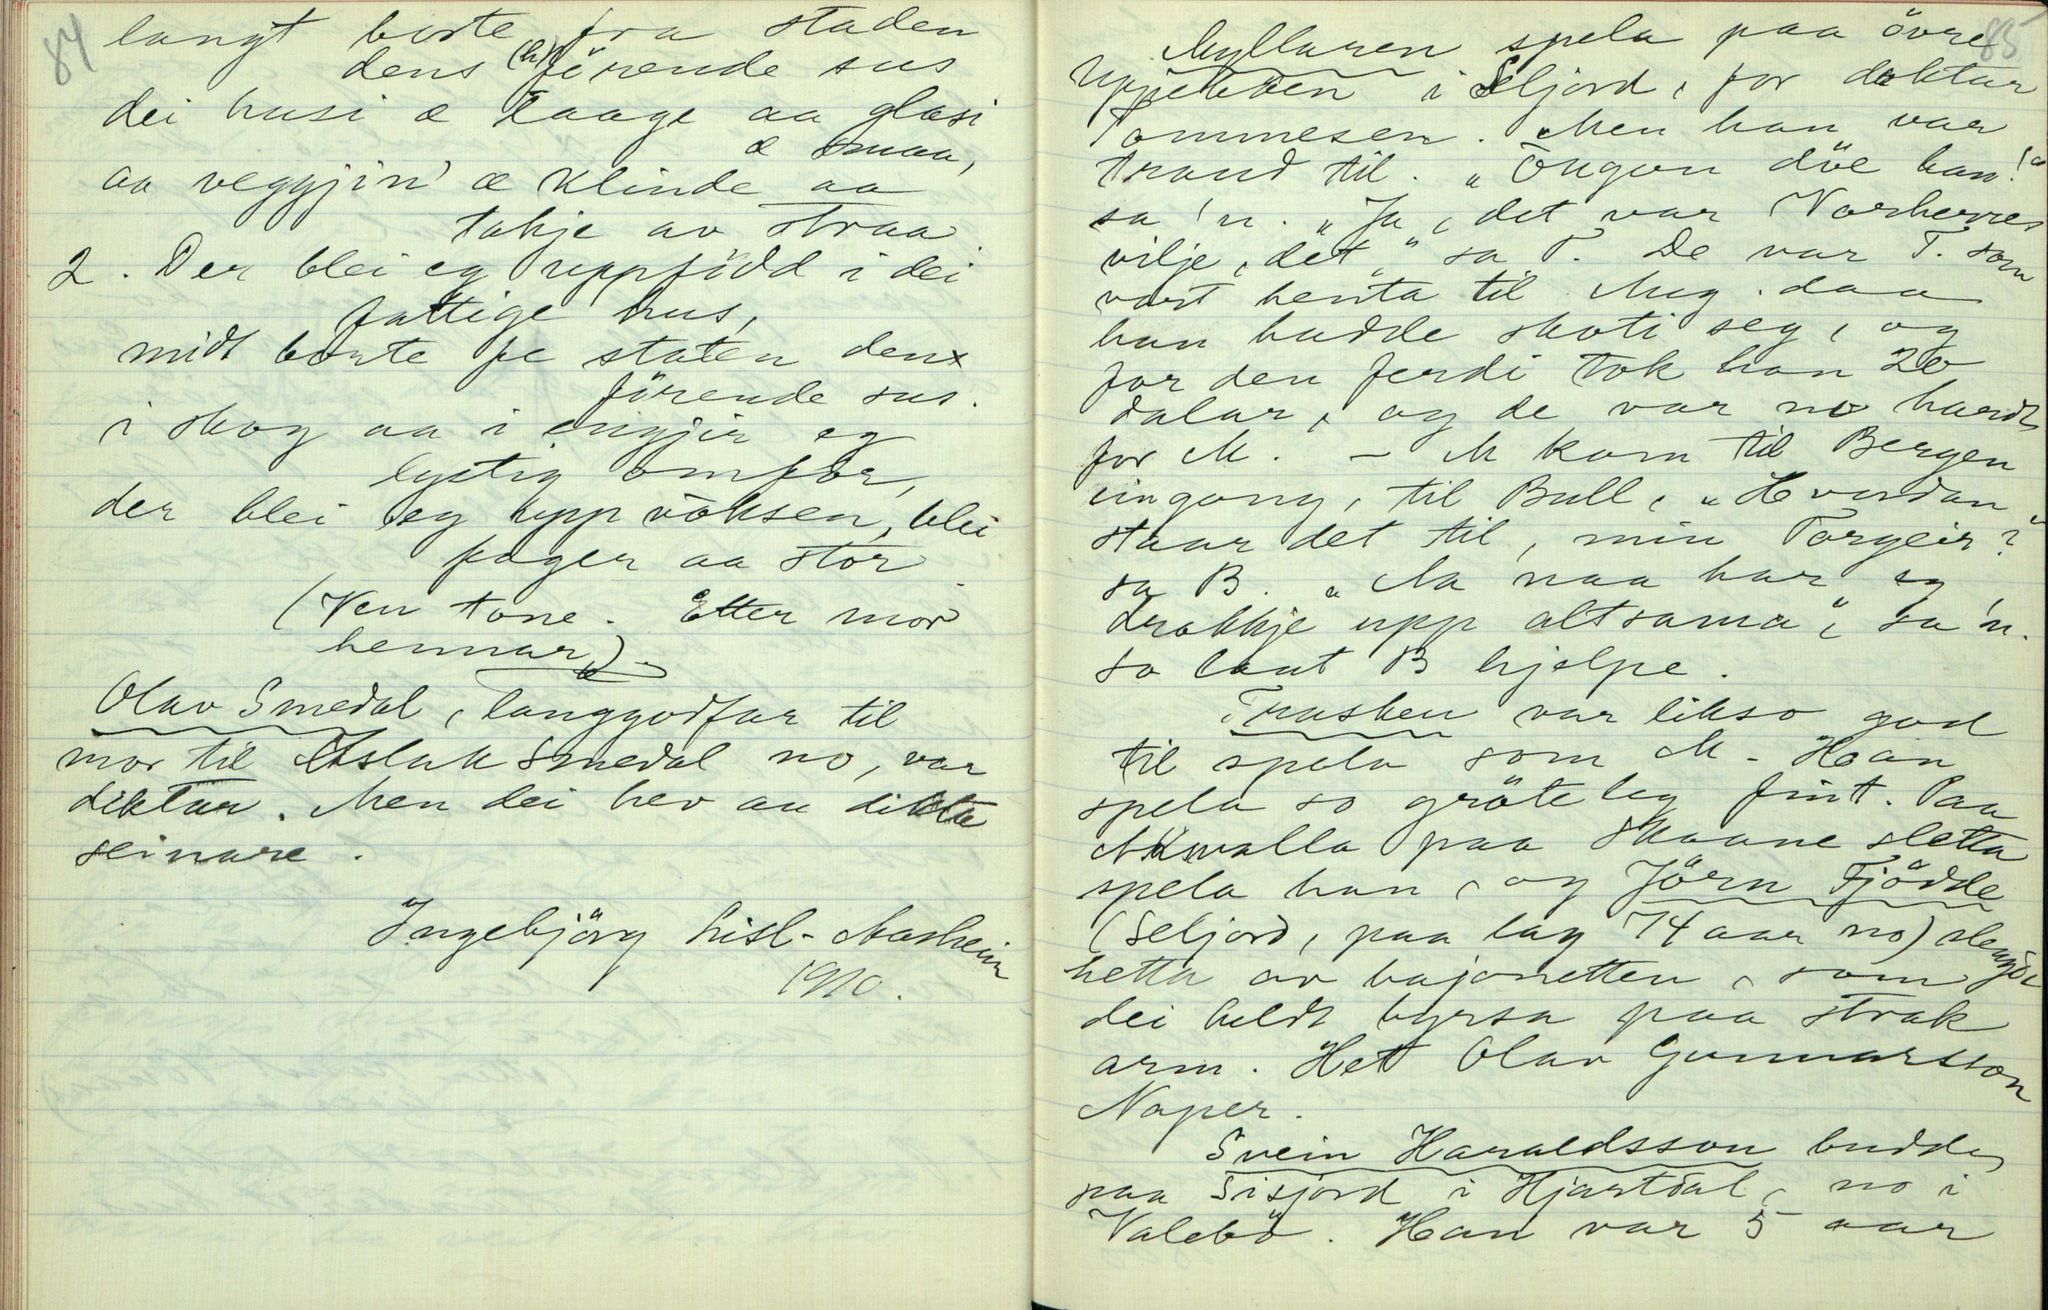 84
langt borte fra staden
dens (h)förende sus
dei husi æ laage aa glasi
æ smaa,
aa veggjin' æ klinde aa
takje av straa
2. Der blei eg uppfödd i dei
fattige hus,
midt borte fe staten dens
förende sus.
i skog aa i engjir eg
lystig omfor,
der blei eg upp vöksen, blei
fager aa stor.
(Ven tone. Etter mor
hennar).
Olav Smedal, langgodfar til
mor til Aslak Smedal no, var
diktar. Men dei hev au dikta
seinare.
Ingebjörg Lisl-Aasheim
1910.
85
Myllaren spela paa övre
i Seljord, for doktar
Tommesen. Men han var
traud til. "Ongon döe han!"
sa 'n. "Ja, det var Vorherres
vilje, det," sa T. De var T. som
vart henta til Myg. daa
han hadde skoti seg, og
for den ferdi tok han 20
dalar, og de var no hardt
for M. - M kom til Bergen
eingong, til Bull, "Hvordan
staar det til, min Torgeir?"
sa B. "Aa naa har eg
drokkje upp altsama", sa 'n.
so laut B hjelpe.
Trasken var likso god
til spela som M. Han
spela so gröteleg fint. Paa
paa Skaane sletta
spela han, og Jörn Fjödde
(Seljord, paa lag 74 aar no) slengde
hetta av bajonetten, som
dei heldt byrsa paa strak
arm. Het Olav Gunnarsson
Naper.
Svein Haraldsson budde
paa Sisjord i Hjartdal, no i
Valebö. Han var 5 aar